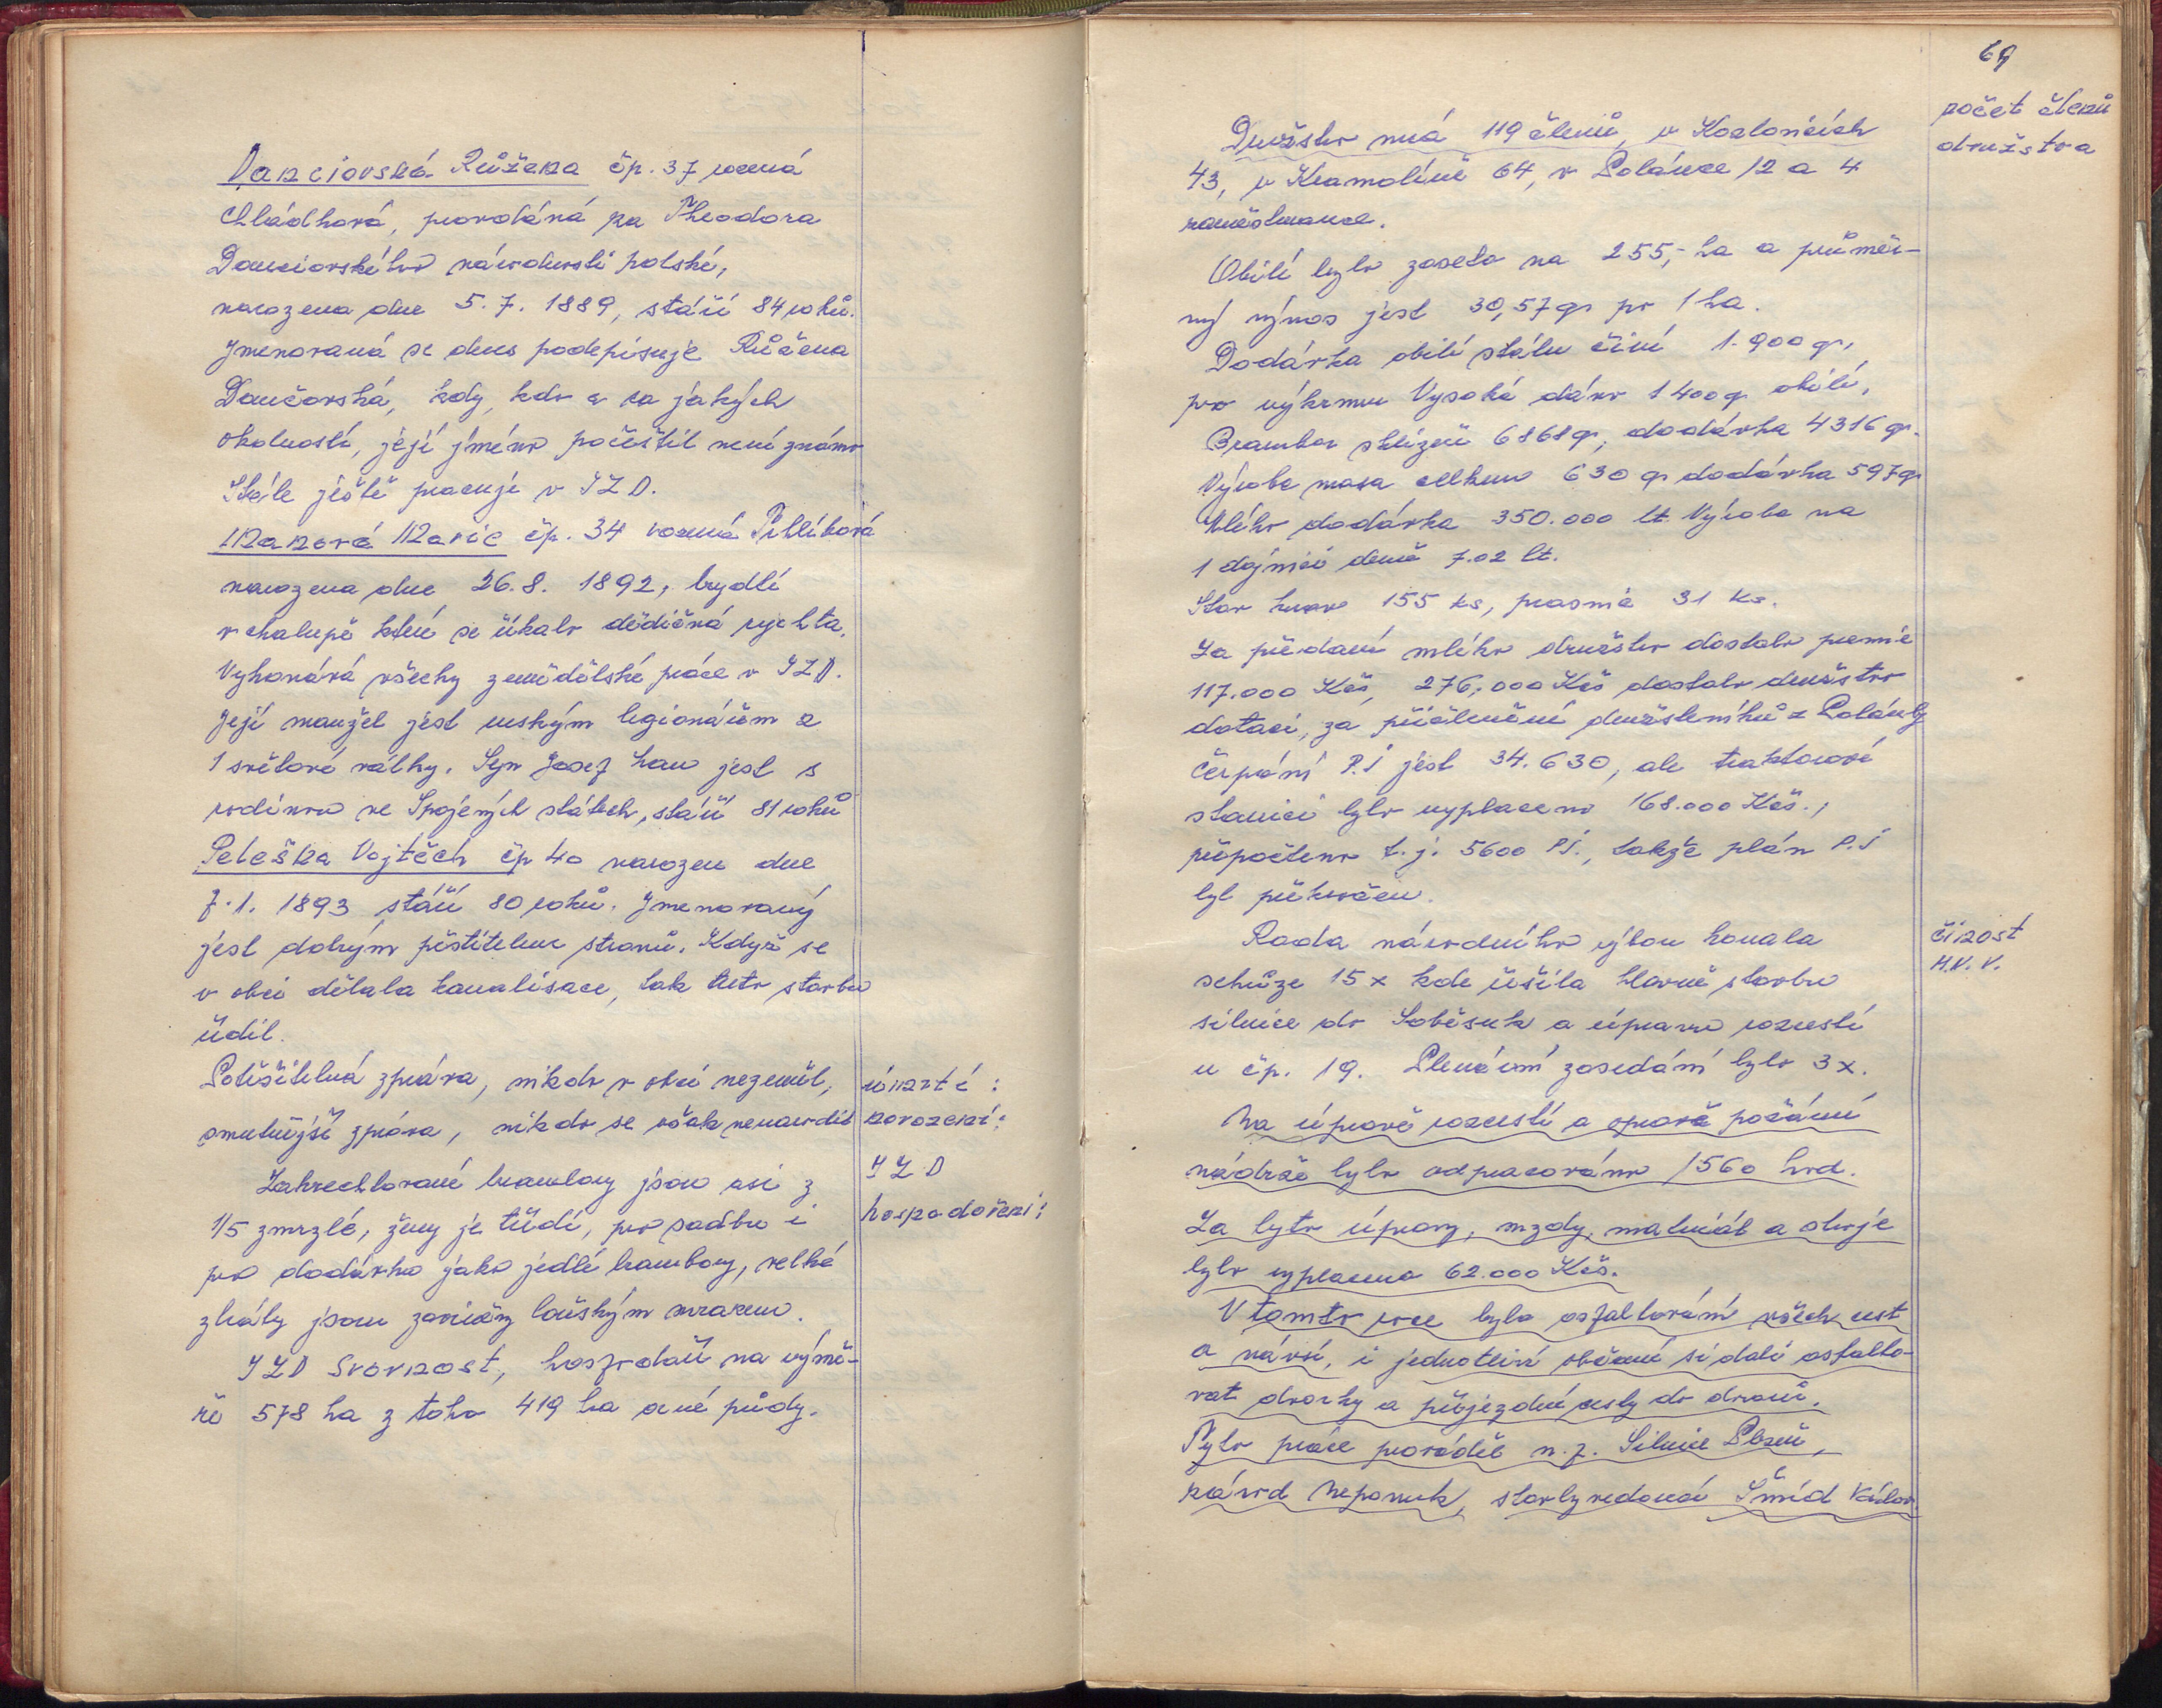 Danciovská Růžena čp. 37 rozená
Chládková, provdáná za Theodora
Danciovského národnosti polské,
narozena dne 5. 7. 1889, stáří 84 roků.
Jmenovaná se dnes podepisuje Růžena
Dančovská, kdy, kdo a za jakých
okolností, její jméno počeštil není známo
Stále ještě pracuje v JZD.
Manová Marie čp. 34 rozená
narozena dne 26. 8. 1892, bydlí
v chalupě které se říkalo dědičná rychta.
Vykonává všechny zemědělské práce v JZD.
Její manžel jest ruským legionářem z
1 světové války. Syn Josef Man jest s
rodinou ve Spojených státech, stáří 81 roků
Peleška Vojtěch čp 40 narozen dne
7. 1. 1893 stáří 80 roků. Jmenovaný
jest dobrým pěstitelem stromů. Když se
v obci dělala kanalisace, tak tuto stavbu
řídil.
Potěšitelná zpráva, nikdo v obci nezemřel,
úmrtí:
smutnější zpráva, nikdo se však nenarodil
narození:
JZD
hospodaření:
Zakrechtované brambory jsou asi z
1/5 zmrzlé, ženy je třídí, pro sadbu i
pro dodávku jako jedlé brambory, velké
ztráty jsou zaviněny loňským mrazem.
JZD Svornost, hospodaří na výmě-
ře 578 ha z toho 419 ha orné půdy.
69
počet členů
družstva
Družstvo má 119 členů, v Kozlovicích
43, v Kramolíně 64, v Polánce 12 a 4
zaměstnance.
Obilí bylo zaseto na 255,- ha a průměr-
ný výnos jest 30,57 q po 1 ha.
Dodávka obilí státu činí 1.900 q,
pro výkrmnu Vysoká dáno 1400 q obilí,
Brambor sklizeň 6868 q, dodávka 4316 q.
Výroba masa celkem 630 q dodávka 597 q
Mléko dodávka 350.000 lt. Výroba na
1 dojnici deně 7.02 lt.
Stav krav 155 ks, prasnic 31 ks.
Za předání mléka družstvo dostalo premie
117.000 Kčs, 276.000 Kčs dostalo družstvo
dotaci, za přičlenění družsteníků z Polánky
Čerpání P.J jest 34.630, ale traktorové
stanici bylo vyplaceno 168.000 Kčs.,
přepočteno t.j. 5600 PJ., takže plán P.J
byl překročen.
činost
M.N.V.
Rada národního výbou konala
schůze 15 x kde řešila hlavně stavbu
silnice do Soběsuk a úpravu rozcestí
u čp. 19. Plenární zasedání bylo 3x.
Na úpravě rozcestí a opravě požární
nádrže bylo odpracováno 1560 hod.
Za tyto úpravy, mzdy, materiál a stroje
bylo vyplaceno 62.000 Kčs.
V tomto roce bylo asfaltování všech cest
a návsi, i jednotliví občané si dali asfalto-
vat dvorky a příjezdné cesty do dvorů.
Tyto práce prováděl n.p. Silnice Plzeň,
závod Nepomuk, stavbyvedoucí Šmíd